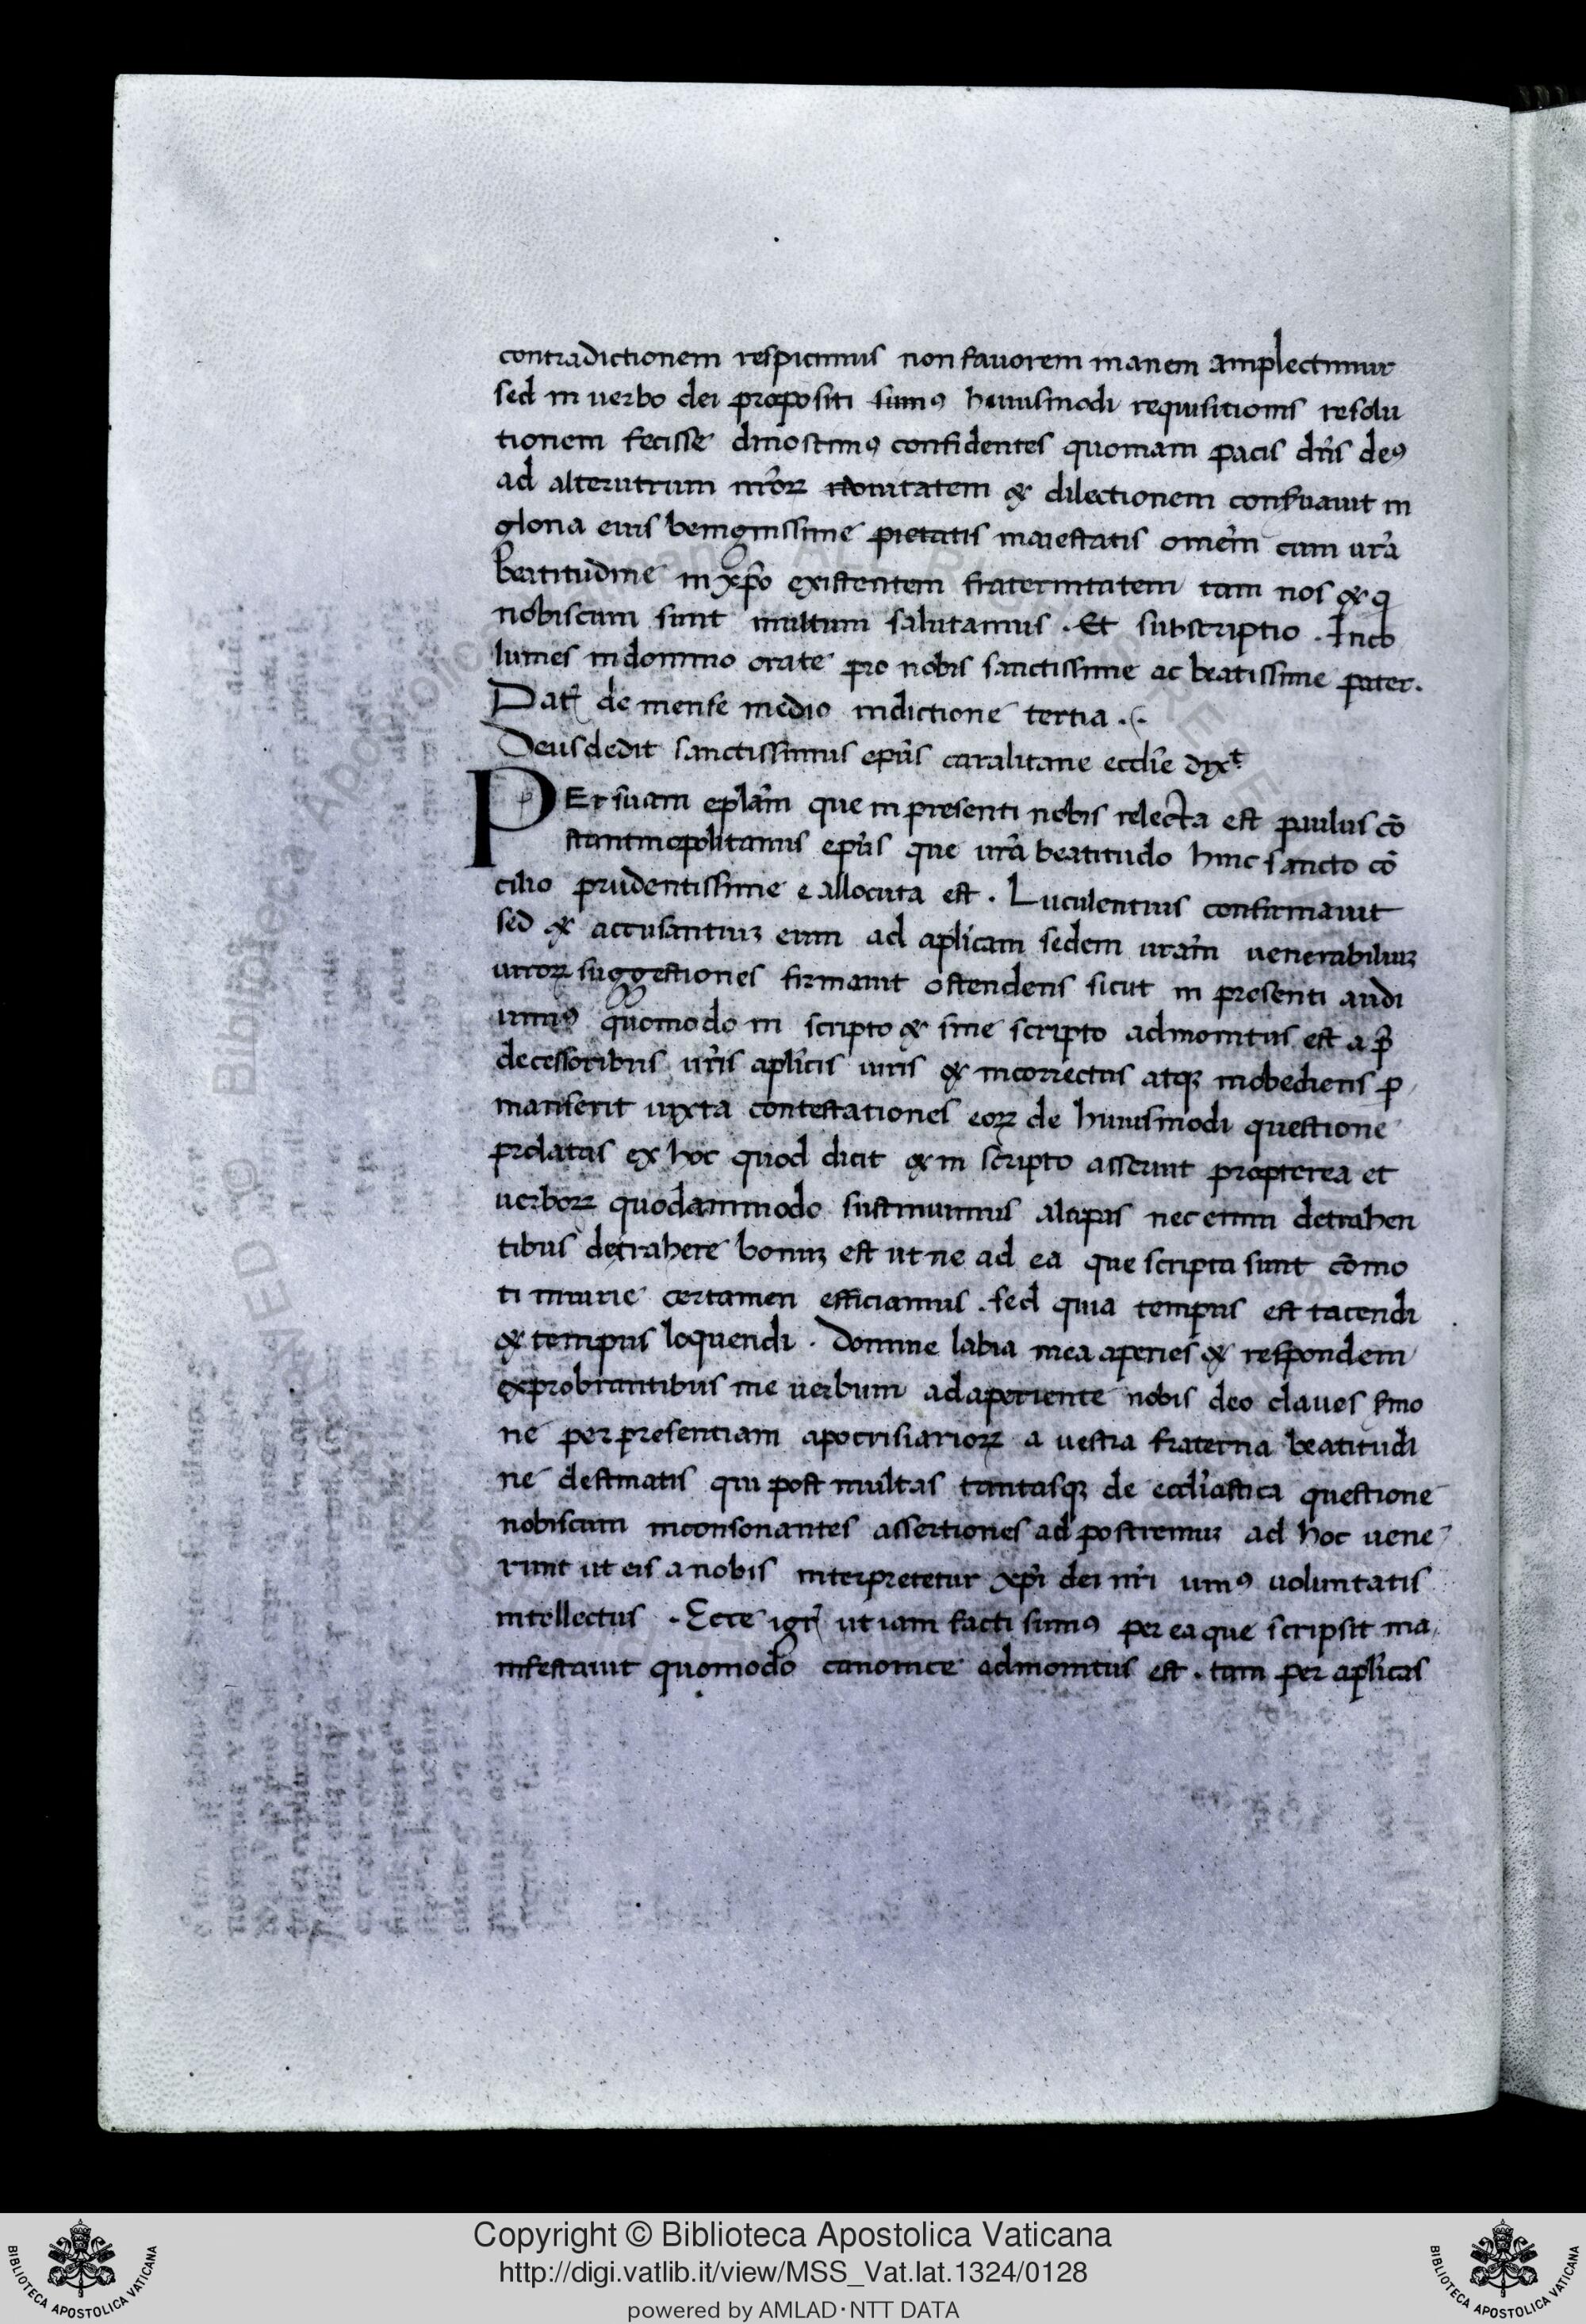 contradictionem respicimus non fauorem inanem amplectimur
sed in uerbo dei propositi sumꝰ huiusmodi requisitionis resolu
tionem fecisse dinoscimꝰ confidentes quoniam pacis dn̄s deꝰ
ad alterutrum nr̄oꝝ unitatem & dilectionem conseruauit in
gloria eius benignissime pietatis maiestatis omēm cum ur̄a
beatitudine in xp̄o existentem fraternitatem tam nos & q
nobiscum sunt multum salutamus . Et subscriptio . Inco
lumes in domino orate pro nobis sanctissime ac beatissime pater .
Dat̄ de mense medio indictione tertia .
Deusdedit sanctissimus ep̄us caralitane eccl̄ie dixt
PEr suam ep̄lam que in presenti nobis relecta est paulus cō
stantinopolitanus ep̄us que ur̄a beatitudo hinc sancto cō
cilio prudentissime e allocuta est . Luculentius confirmauit
sed & accusantiuꝫ eum ad ap̄licam sedem ur̄am uenerabiliuꝫ
uiroꝝ suggestiones firmauit ostendens sicut in presenti audi
uimꝰ quomodo in scripto & sine scripto admonitus est a p̄
decessoribus ur̄is ap̄licis uiris & incorrectus atqꝫ inobediens ꝑ
manserit iuxta contestationes eoꝝ de huiusmodi questione
prolatas ex hoc quod dicit & in scripto asserunt propterea et
uerboꝝ quodammodo sustinuimus alapas nec enim detrahen
tibus detrahere bonuꝫ est ut ne ad ea que scripta sunt cōmo
ti iniurie certamen efficiamus . sed quia tempus est tacendi
& tempus loquendi . Domine labia mea aperies & respondem
exprobrantibus me uerbum adaperiente nobis deo claues smo
ne per presentiam apocrisiarioꝝ a uestra fraterna beatitudi
ne destinatis qui post multas tantasqꝫ de eccl̄iastica questione
nobiscum inconsonantes assertiones ad postremuꝫ ad hoc uene
runt ut eis a nobis interpretetur xp̄i dei nr̄i uniꝰ uoluntatis
intellectus . Ecce igr̄ ut iam facti sumꝰ per ea que scripsit ma
nifestauit quomodo canonice admonitus est . tam per ap̄licas
Copyright © Biblioteca Apostolica Vaticana
http://digi.vatlib.it/view/MSS_Vat.lat.1324/0128
powered by AMLAD·NTT DATA
BIBLIOTECA APOSTOLICA VATICANA
BIBLIOTECA APOSTOLICA VATICANA